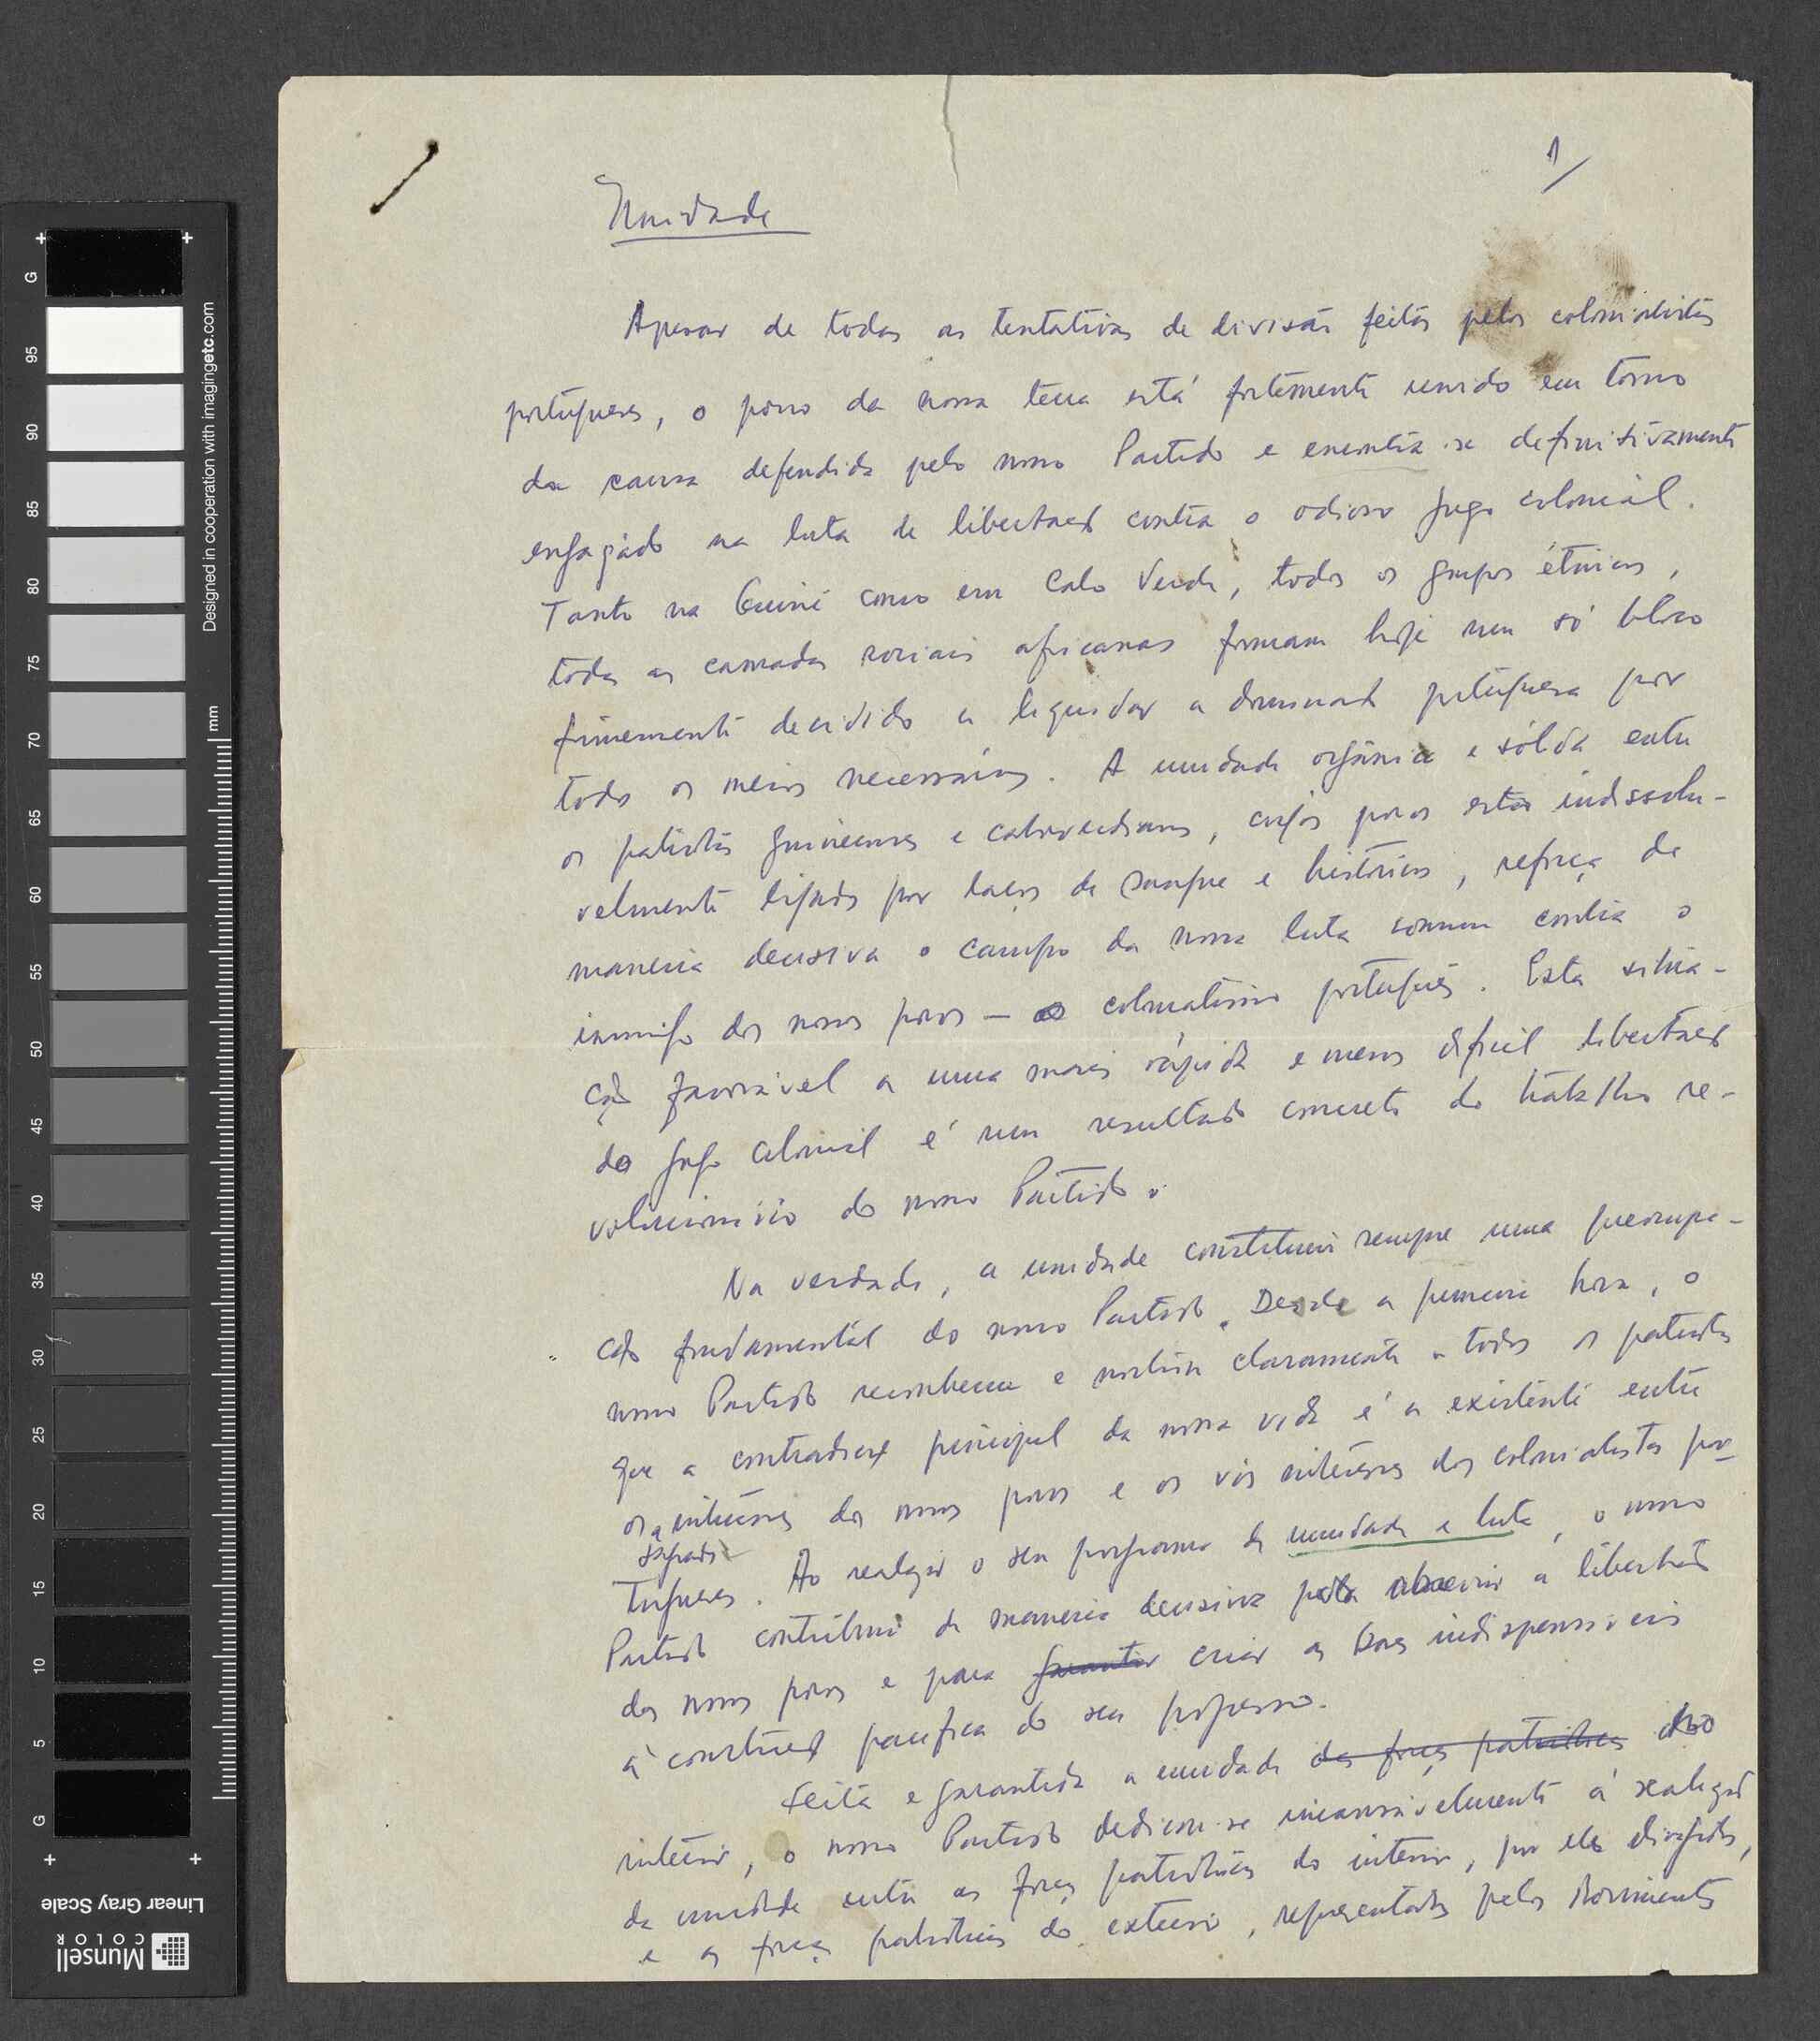 1/
Unidade
Apesar de todas as tentativas de divisão feitas pelos colonialistas
portugueses, o povo da nossa terra está fortemente unido em torno
da causa defendida pelo nosso Partido e encontra-se definitivamente
engajado na luta de libertação contra o odioso jugo colonial.
Tanto na Guiné como em Cabo Verde, todos os grupos étnicos,
todas as camadas sociais africanas formam hoje um só bloco
firmemente decidido a liquidar a dominação portuguesa por
todos os meios necessários. A unidade orgânica e sólida entre
os patriotas guineenses e caboverdianos, cujos povos estão indissolu-
velmente ligados por laços de sangue e históricos, reforça de
maneira decisiva o campo da nossa luta comum contra o
inimigo dos nossos povos — o colonialismo português. Esta situa-
ção favorável a uma mais rápida e menos difícil libertação
do jugo colonial é um resultado concreto do trabalho re-
volucionário do nosso Partido.
Na verdade, a unidade constituiu sempre uma preocupa-
ção fundamental do nosso Partido. Desde a primeira hora, o
nosso Partido reconheceu e mostrou claramente a todos os patriotas
que a contradição principal da nossa vida é a existente entre
os interesses dos nossos povos e os vis interesses dos colonialistas por-
sagrados
tugueses. Ao realizar o seu programa de unidade e luta, o nosso
Partido contribuiu de maneira decisiva para a libertação
dos nossos povos e para garantir criar as bases indispensáveis
à construção pacífica do seu progresso.
Feita e garantida a unidade das forças patrióticas no
interior, o nosso Partido dedicou-se incansavelmente à realização
da unidade entre as forças patrióticas do interior, por ele dirigidas,
e as forças patrióticas do exterior, representadas pelos Movimentos
G
95
90
85
80
75
70
65
60
55
50
45
40
35
30
25
20
15
10
5
G
mm
Designed in cooperation with imagingetc.com
Linear Gray Scale
Munsell
COLOR